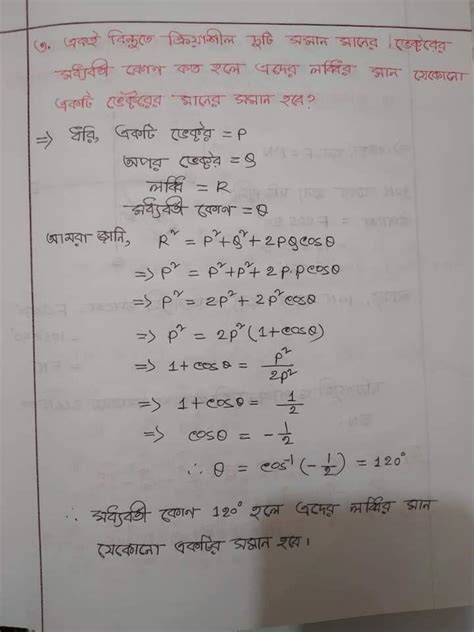 ৩. একই বিন্দুতে ক্রিয়াশীল দুটি সমান মানের ভেক্টরের
মধ্যবর্তী কোণ কত হলে এদের লব্ধির মান যেকোনো
একটি ভেক্টরের মানের সমান হবে?
⇒ ধরি, একটি ভেক্টর = P
অপর ভেক্টর = Q
লব্ধি = R
মধ্যবর্তী কোণ = θ
আমরা জানি, R² = P²+Q²+2PQcosθ
⇒ P² = P²+P²+2P.Pcosθ
⇒ P² = 2P²+2P²cosθ
⇒ P² = 2P²(1+cosθ)
⇒ 1+cosθ = P²/2P²
⇒ 1+cosθ = 1/2
⇒ cosθ = -1/2
∴ θ = cos⁻¹(-1/2) = 120°
∴ মধ্যবর্তী কোণ 120° হলে এদের লব্ধির মান
যেকোনো একটির সমান হবে।